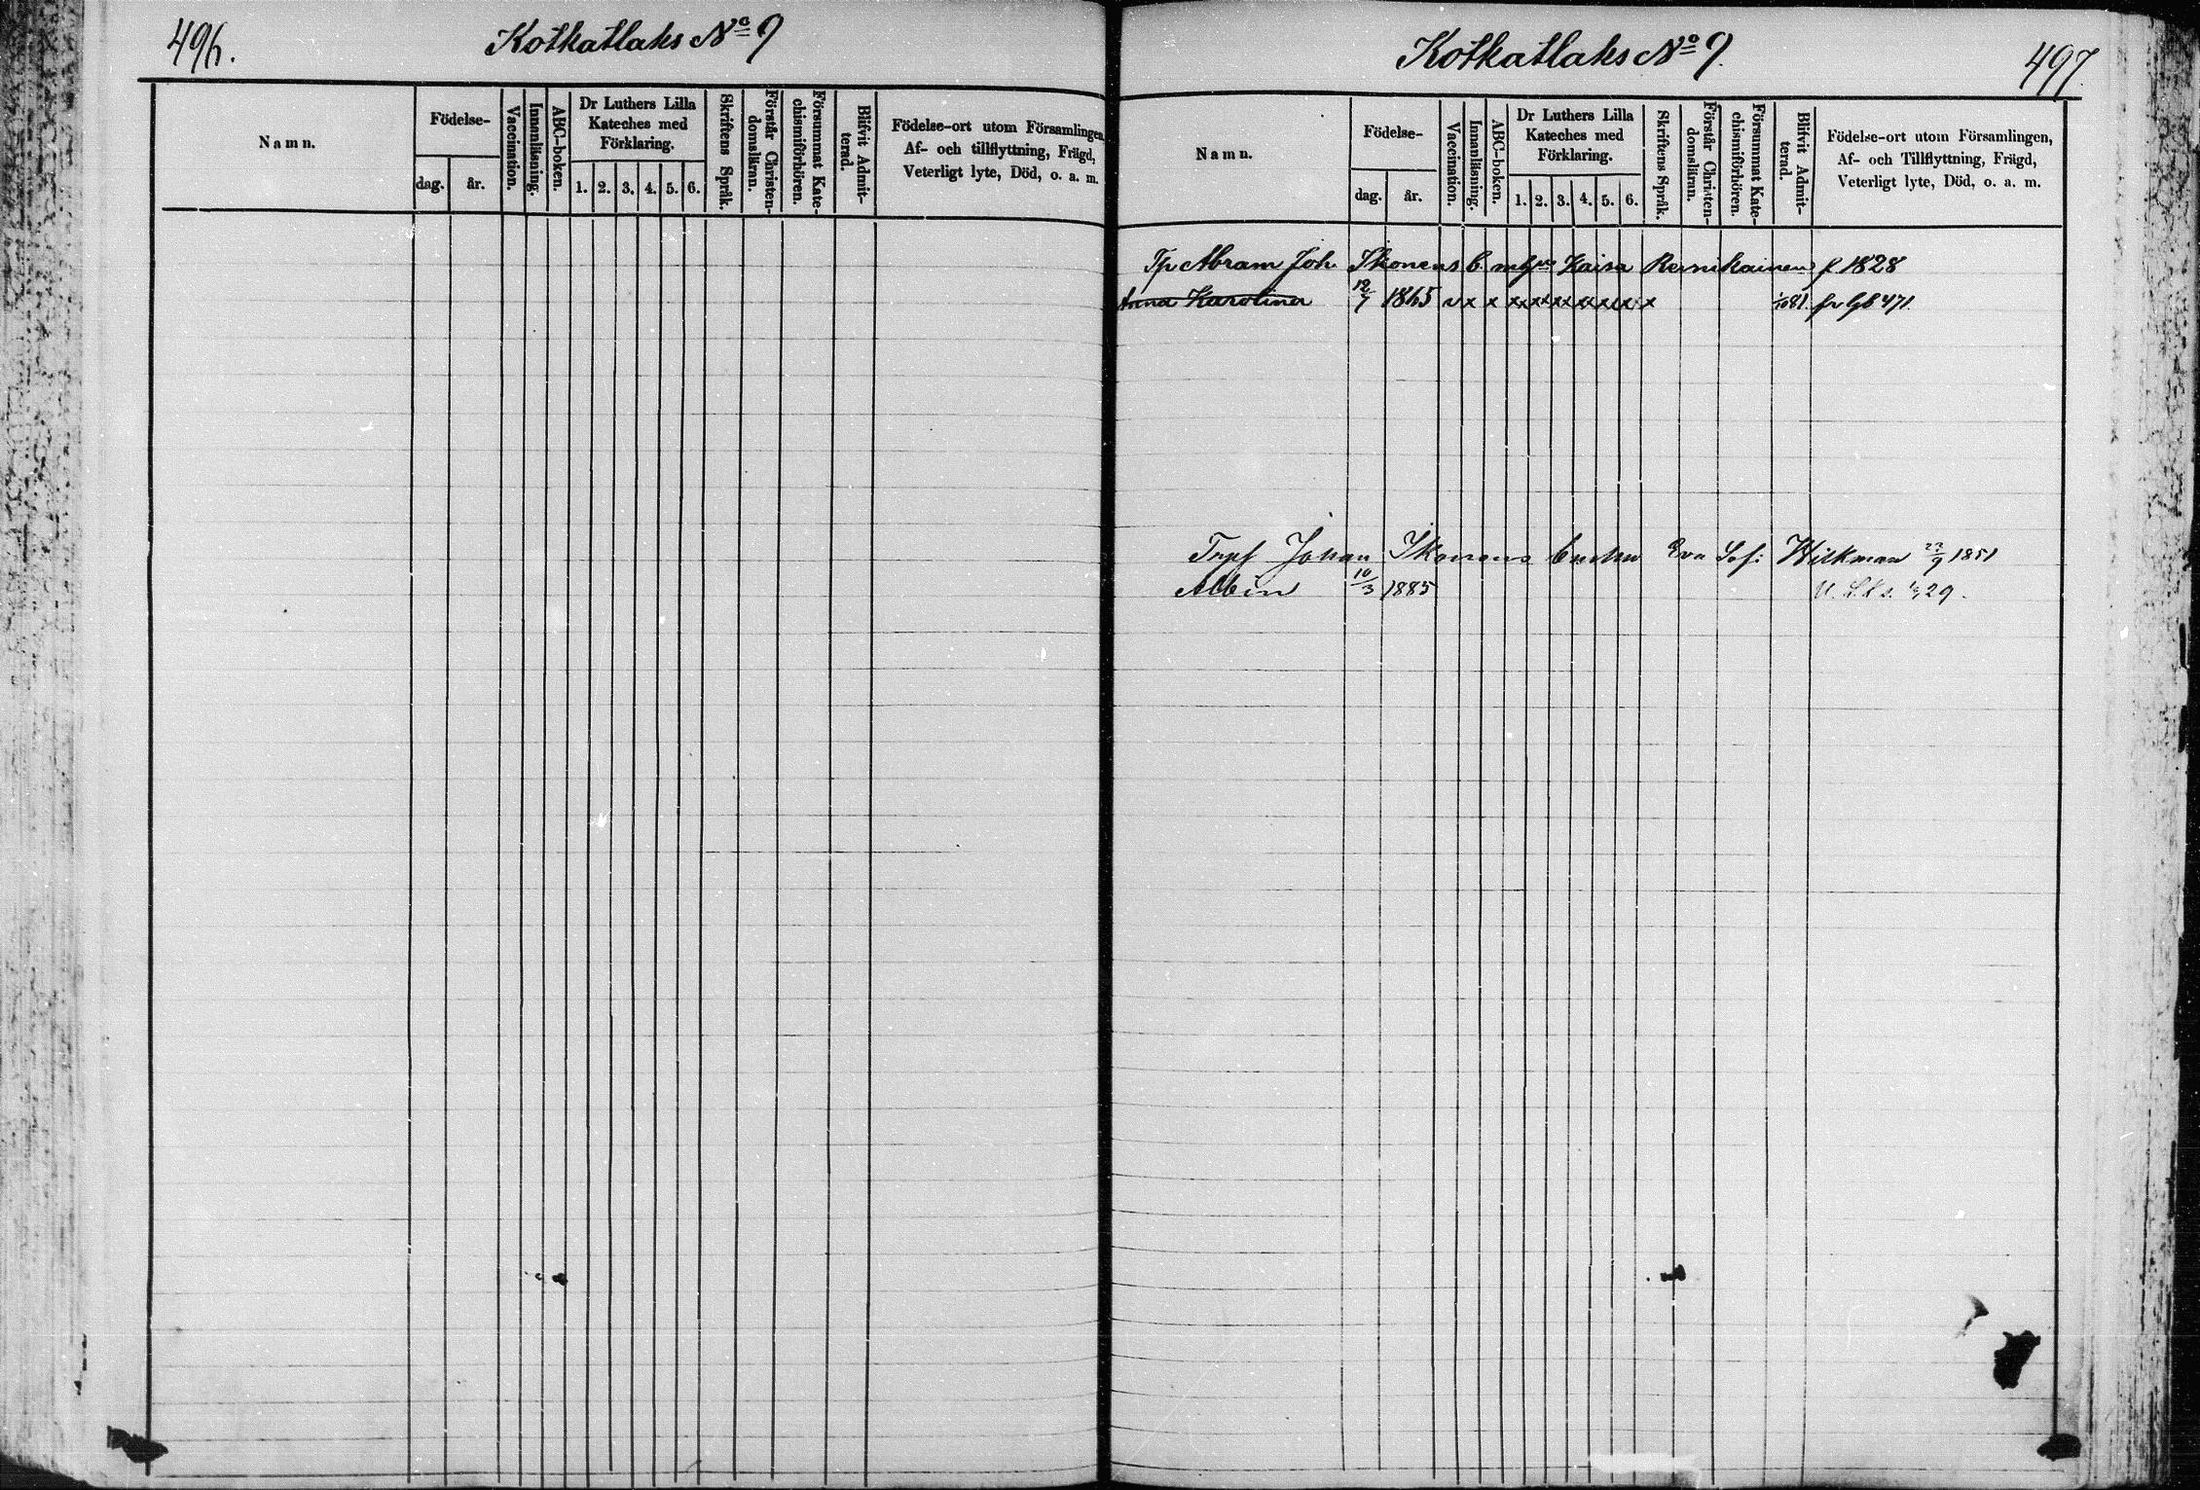 496.
Kotkatlaks No 9
Namn.
Födelse-
dag.
år.
Vaccination.
Innanläsning.
ABC-boken.
Dr Luthers Lilla
Kateches med
Förklaring.
1. 2. 3. 4. 5. 6.
Skriftens Språk.
Förstår Christen-
domsläran.
Försummat Kate-
chismiförhören.
Blifvit Admit-
terad.
Födelse-ort utom Församlingen,
Af- och tillflyttning, Frägd,
Veterligt lyte, Död, o. a. m.
Kotkatlaks No 9.
497.
Namn.
Födelse-
dag.
år.
Vaccination.
Innanläsning.
ABC-boken.
Dr Luthers Lilla
Kateches med
Förklaring.
1. 2. 3. 4. 5. 6.
Skriftens Språk.
Förstår Christen-
domsläran.
Försummat Kate-
chismiförhören.
Blifvit Admit-
terad.
Födelse-ort utom Församlingen,
Af- och Tillflyttning, Frägd,
Veterligt lyte, Död, o. a. m.
Tp Abram Joh Ikonens b. m Kaisa Rernikainen f 1828
Anna Karolina 12/7 1865 v x x xx xx xx xx xx xx x 81. fr Gb 471.
Johan Ikonens Eva Sof: Wilkman 23/9 1851
Albin 10/3 1885 29.